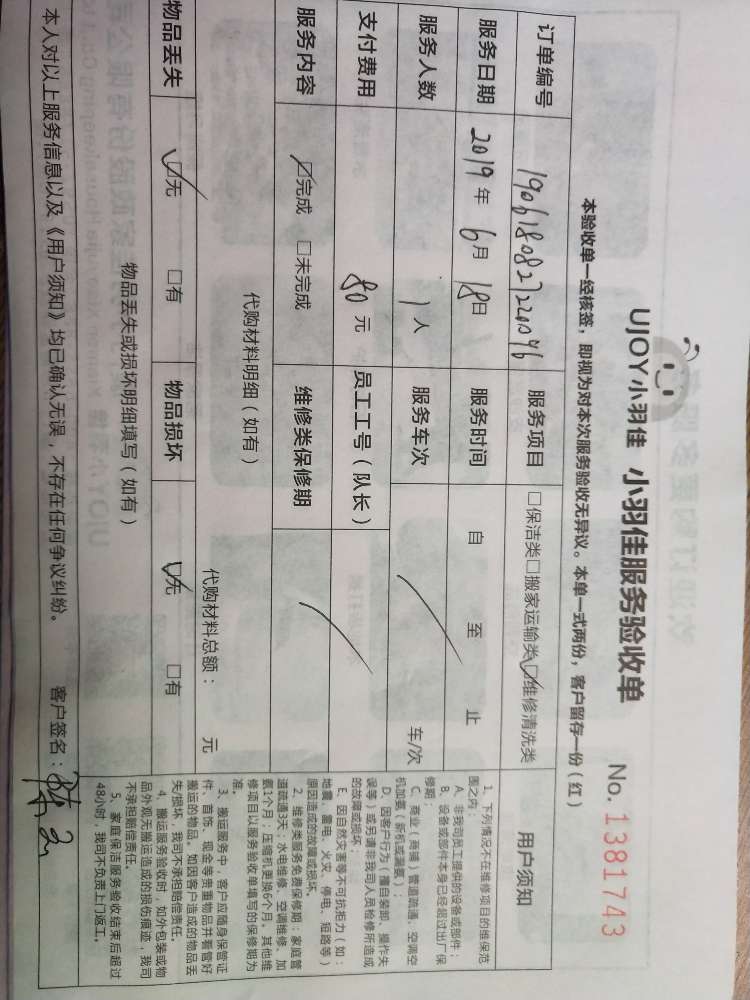 UJOY小羽佳 小羽佳服务验收单 No. 1381743
本验收单一经核签，即视为对本次服务验收无异议。本单一式两份，客户留存一份（红）
订单编号 190618082722004b 服务项目 □保洁类□搬家运输类☑维修清洗类
服务日期 2019年6月18日 服务时间 自 至 止
服务人数 1人 服务车次 车/次
支付费用 80元 员工工号（队长）
服务内容 ☑完成 □未完成 维修类保修期
代购材料明细（如有）
代购材料总额： 元
物品丢失 ☑无 □有 物品损坏 ☑无 □有
物品丢失或损坏明细填写（如有）
本人对以上服务信息以及《用户须知》均已确认无误，不存在任何争议纠纷。 客户签名：
用户须知
1、下列情况不在维修项目的维保范
围之内：
A、非我司员工提供的设备或部件；
B、设备或部件本身已经超过出厂保
修期；
C、商业（商铺）管道疏通，空调空
机加氨（新机或漏氨）；
D、因客户行为（擅自装卸、操作失
误等）或另请非我司人员检修所造成
的故障或损坏；
E、因自然灾害等不可抗拒力（如：
地震、雷电、火灾、停电、短路等）
原因造成的故障或损坏。
2、维修类服务免费保修期：家庭管
道疏通3天；水电维修、空调维修、加
氨1个月；压缩机更换6个月。其他维
修项目以服务验收单填写的保修期为
准。
3、搬运服务中，客户应随身保管证
件、首饰、现金等贵重物品并看管好
搬运的物品。如因客户造成的物品丢
失/损坏，我司不承担赔偿责任。
4、搬运服务验收时，如外包装或物
品外观无搬运造成的损伤痕迹，我司
不承担赔偿责任。
5、家庭保洁服务验收结束后超过
48小时，我司不负责上门返工。